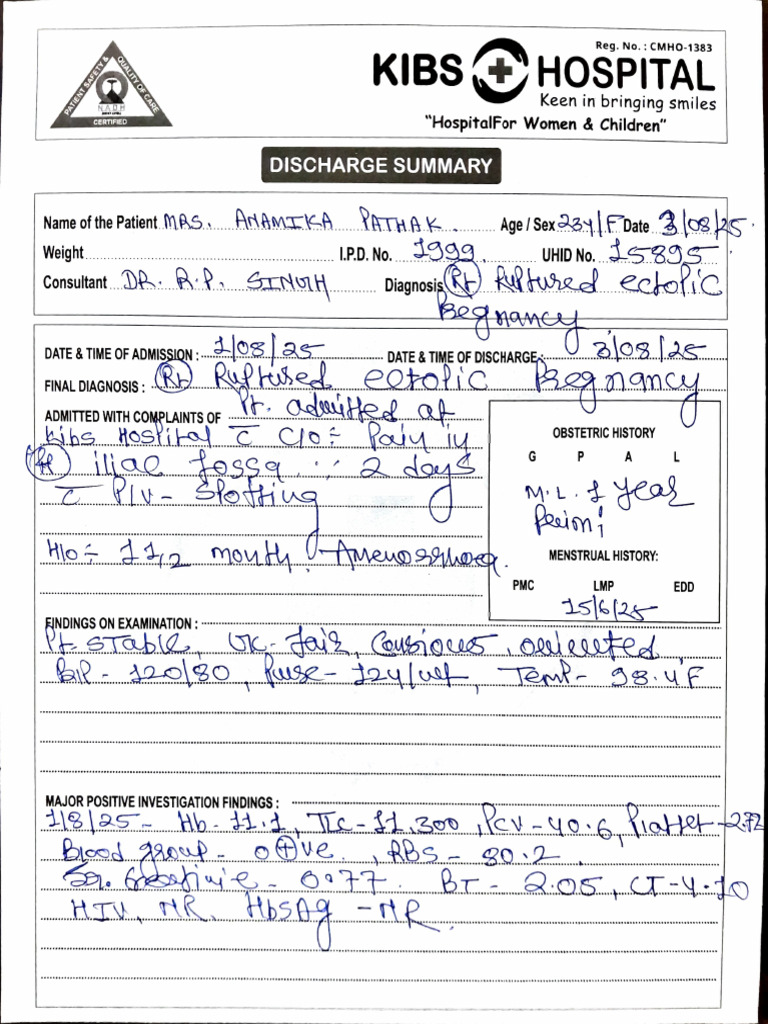 Reg. No. : CMHO-1383
KIBS HOSPITAL
Keen in bringing smiles
"HospitalFor Women & Children"
PATIENT SAFETY & QUALITY OF CARE
CERTIFIED
DISCHARGE SUMMARY
Name of the Patient MRS. ANAMIKA PATHAK. Age / Sex 23y/F Date 3/08/25
Weight I.P.D. No. 1999. UHID No. 15895
Consultant DR. R.P. SINGH Diagnosis Rt Ruptured ectopic
Pregnancy
DATE & TIME OF ADMISSION : 1/08/25 DATE & TIME OF DISCHARGE : 3/08/25
FINAL DIAGNOSIS : Rt Ruptured ectopic Pregnancy
ADMITTED WITH COMPLAINTS OF Pt. admitted at
Kibs Hospital c̄ C/O:- Pain in
Rt iliac fossa 2 days
c̄ P/V- Spotting
H/O:- 1 1/2 month Amenorrhoea.
OBSTETRIC HISTORY
G P A L
M.L. 1 year
MENSTRUAL HISTORY:
PMC LMP EDD
15/6/25
FINDINGS ON EXAMINATION :
Pt. STable, G.C- fair, Consious, oriented,
B.P- 120/80, Pulse- 124/mt, Temp- 98.4F
MAJOR POSITIVE INVESTIGATION FINDINGS :
1/8/25- Hb-11.1, TLC-11,300, PCV-40.6, Platlet-2.72
Blood group- O+ve, RBS- 80.2
Sr. Creatinine- 0.77. BT- 2.05, CT-4.10
HIV, NR. HbSAg -NR.